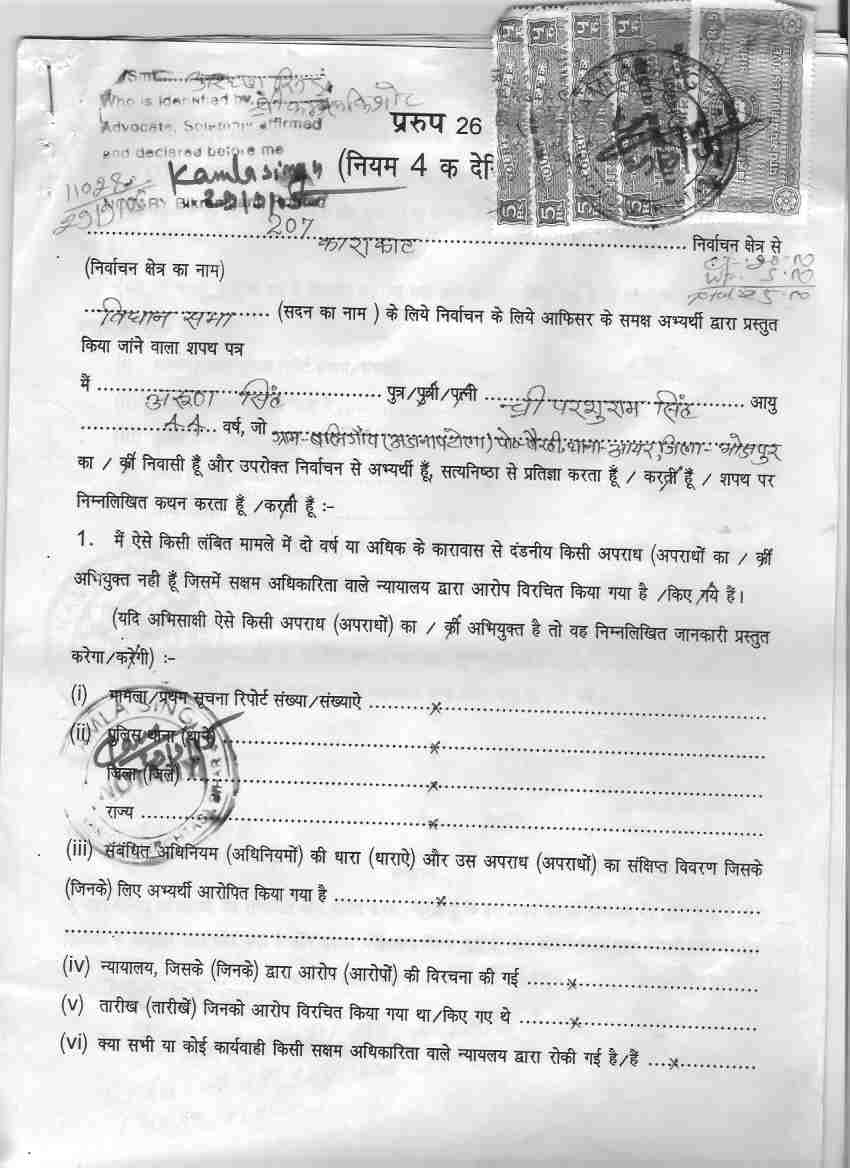 S....... अरुण सिंह
Who is identified by
Advocate, Solemnly affirmed
and declared before me
Kamla singh
NOTARY
प्ररुप 26
(नियम 4 क देखि
207
काराकाट निर्वाचन क्षेत्र से
(निर्वाचन क्षेत्र का नाम)
विधान सभा (सदन का नाम ) के लिये निर्वाचन के लिये आफिसर के समक्ष अभ्यर्थी द्वारा प्रस्तुत
किया जांने वाला शपथ पत्र
में अरुण सिंह पुत्र/पुत्री/पत्नी श्री परशुराम सिंह आयु
44 वर्ष, जो ग्राम- थाना- जिला- भोजपुर
का / की निवासी हूँ और उपरोक्त निर्वाचन से अभ्यर्थी हूँ, सत्यनिष्ठा से प्रतिज्ञा करता हूँ / करती हूँ / शपथ पर
निम्नलिखित कथन करता हूँ /करती हूँ :-
1. मैं ऐसे किसी लंबित मामले में दो वर्ष या अधिक के कारावास से दंडनीय किसी अपराध (अपराधों का / की
अभियुक्त नही हूँ जिसमें सक्षम अधिकारिता वाले न्यायालय द्वारा आरोप विरचित किया गया है /किए गये हैं।
(यदि अभिसाक्षी ऐसे किसी अपराध (अपराधों) का / की अभियुक्त है तो वह निम्नलिखित जानकारी प्रस्तुत
करेगा/करेगी) :-
(i) मामला/प्रथम सूचना रिपोर्ट संख्या/संख्याऐ x
(ii) पुलिस थाना (थाने) x
जिला (जिले) x
राज्य x
(iii) संबंधित अधिनियम (अधिनियमों) की धारा (धाराऐ) और उस अपराध (अपराधों) का संक्षिप्त विवरण जिसके
(जिनके) लिए अभ्यर्थी आरोपित किया गया है x
(iv) न्यायालय, जिसके (जिनके) द्वारा आरोप (आरोपों) की विरचना की गई x
(v) तारीख (तारीखें) जिनको आरोप विरचित किया गया था/किए गए थे x
(vi) क्या सभी या कोई कार्यवाही किसी सक्षम अधिकारिता वाले न्यायलय द्वारा रोकी गई है/हैं x